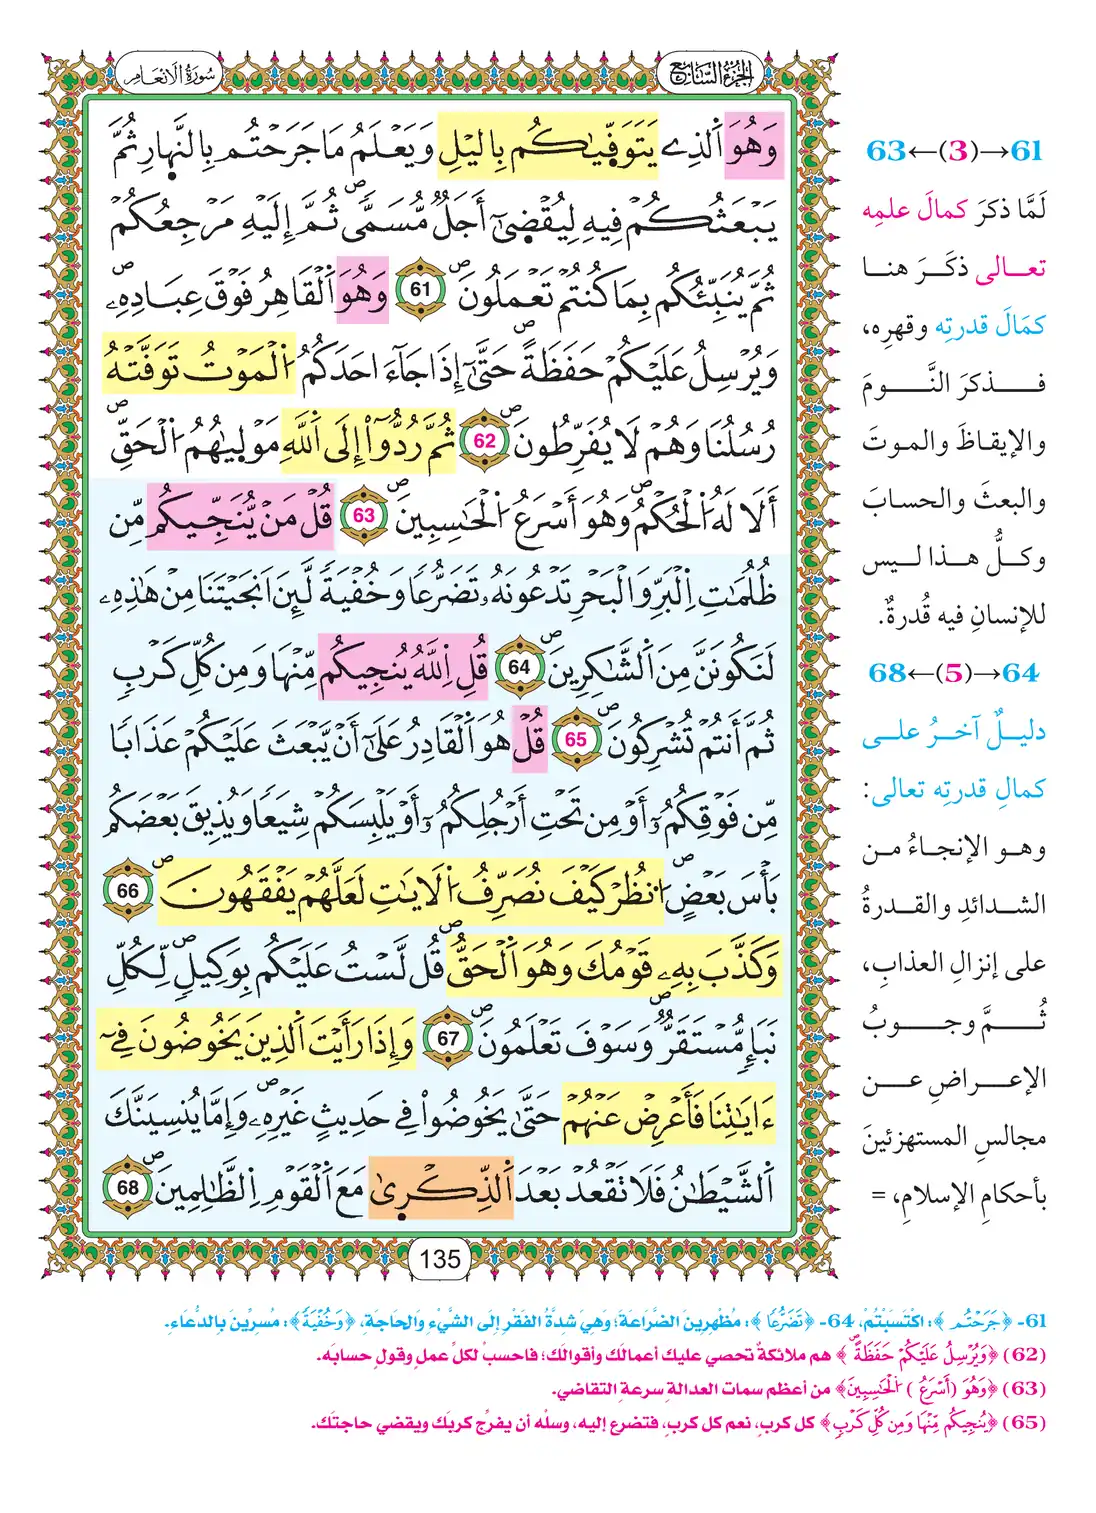 الجزء السابع
سورة الانعام
وَهُوَ اَ۬لذِے يَتَوَفّ۪يٰكُم بِاليْلِ وَيَعْلَمُ مَا جَرَحْتُم بِالنَّه۪ارِ ثُمَّ
يَبْعَثُكُمْ فِيهِ لِيُقْض۪يٰٓ أَجَلٞ مُّسَمّيٗۖ ثُمَّ إِلَيْهِ مَرْجِعُكُمْ
ثُمَّ يُنَبِّئُكُم بِمَا كُنتُمْ تَعْمَلُونَۖ 61 وَهُوَ اَ۬لْقَاهِرُ فَوْقَ عِبَادِهِۦۖ
وَيُرْسِلُ عَلَيْكُمْ حَفَظَةًۖ حَتَّيٰٓ إِذَا جَآءَ احَدَكُمُ اُ۬لْمَوْتُ تَوَفَّتْهُ
رُسُلُنَا وَهُمْ لَا يُفَرِّطُونَۖ 62 ثُمَّ رُدُّوٓاْ إِلَى اَ۬للَّهِ مَوْل۪يٰهُمُ اُ۬لْحَقِّۖ
أَلَا لَهُ اُ۬لْحُكْمُۖ وَهُوَ أَسْرَعُ اُ۬لْحَٰسِبِينَۖ 63 قُلْ مَنْ يُّنَجِّيكُم مِّن
ظُلُمَٰتِ اِ۬لْبَرِّ وَالْبَحْرِ تَدْعُونَهُۥ تَضَرُّعاٗ وَخُفْيَةٗ لَّئِنَ اَنجَيْتَنَا مِنْ هَٰذِهِۦ
لَنَكُونَنَّ مِنَ اَ۬لشَّٰكِرِينَۖ 64 قُلِ اِ۬للَّهُ يُنجِيكُم مِّنْهَا وَمِن كُلِّ كَرْبٖ
ثُمَّ أَنتُمْ تُشْرِكُونَۖ 65 قُلْ هُوَ اَ۬لْقَادِرُ عَلَيٰٓ أَنْ يَّبْعَثَ عَلَيْكُمْ عَذَاباٗ
مِّن فَوْقِكُمُۥٓ أَوْ مِن تَحْتِ أَرْجُلِكُمُۥٓ أَوْ يَلْبِسَكُمْ شِيَعاٗ وَيُذِيقَ بَعْضَكُم
بَأْسَ بَعْضٍۖ اُ۟نظُرْ كَيْفَ نُصَرِّفُ اُ۬لَايَٰتِ لَعَلَّهُمْ يَفْقَهُونَۖ 66
وَكَذَّبَ بِهِۦ قَوْمُكَ وَهُوَ اَ۬لْحَقُّۖ قُل لَّسْتُ عَلَيْكُم بِوَكِيلٖۖ لِّكُلِّ
نَبَإٖ مُّسْتَقَرّٞۖ وَسَوْفَ تَعْلَمُونَۖ 67 وَإِذَا رَأَيْتَ اَ۬لذِينَ يَخُوضُونَ فِےٓ
ءَايَٰتِنَا فَأَعْرِضْ عَنْهُمْ حَتَّيٰ يَخُوضُواْ فِے حَدِيثٍ غَيْرِهِۦۖ وَإِمَّا يُنسِيَنَّكَ
اَ۬لشَّيْطَٰنُ فَلَا تَقْعُدْ بَعْدَ اَ۬لذِّكْر۪يٰ مَعَ اَ۬لْقَوْمِ اِ۬لظَّٰلِمِينَۖ 68
135
61→(3)←63
لَمَّا ذكرَ كمالَ علمِه
تعالى ذكَرَ هنا
كمَالَ قدرتِه وقهرِه،
فذكرَ النَّومَ
والإيقاظَ والموتَ
والبعثَ والحسابَ
وكلُّ هذا ليس
للإنسانِ فيه قُدرةٌ.
64→(5)←68
دليلٌ آخرُ على
كمالِ قدرتِه تعالى:
وهو الإنجاءُ من
الشدائدِ والقدرةُ
على إنزالِ العذابِ،
ثُمَّ وجوبُ
الإعراضِ عن
مجالسِ المستهزئينَ
بأحكامِ الإسلامِ، =
61- ﴿جَرَحْتُم﴾: اكْتَسَبْتُمْ، 64- ﴿تَضَرُّعاٗ﴾: مُظْهِرِينَ الضَّرَاعَةَ؛ وَهِيَ شِدَّةُ الفَقْرِ إِلَى الشَّيْءِ وَالحَاجَةِ، ﴿وَخُفْيَةٗ﴾: مُسِرِّينَ بِالدُّعَاءِ.
(62) ﴿وَيُرْسِلُ عَلَيْكُمْ حَفَظَةًۖ﴾ هم ملائكةٌ تحصي عليك أعمالَك وأقوالَك؛ فاحسبْ لكلِّ عملٍ وقولٍ حسابَه.
(63) ﴿وَهُوَ (أَسْرَعُ) اُ۬لْحَٰسِبِينَ﴾ من أعظم سمات العدالة سرعة التقاضي.
(65) ﴿يُنجِيكُم مِّنْهَا وَمِن كُلِّ كَرْبٖ﴾ كل كربٍ، نعم كل كربٍ، فتضرع إليه، وسلْه أن يفرِّج كربكَ ويقضي حاجتَك.